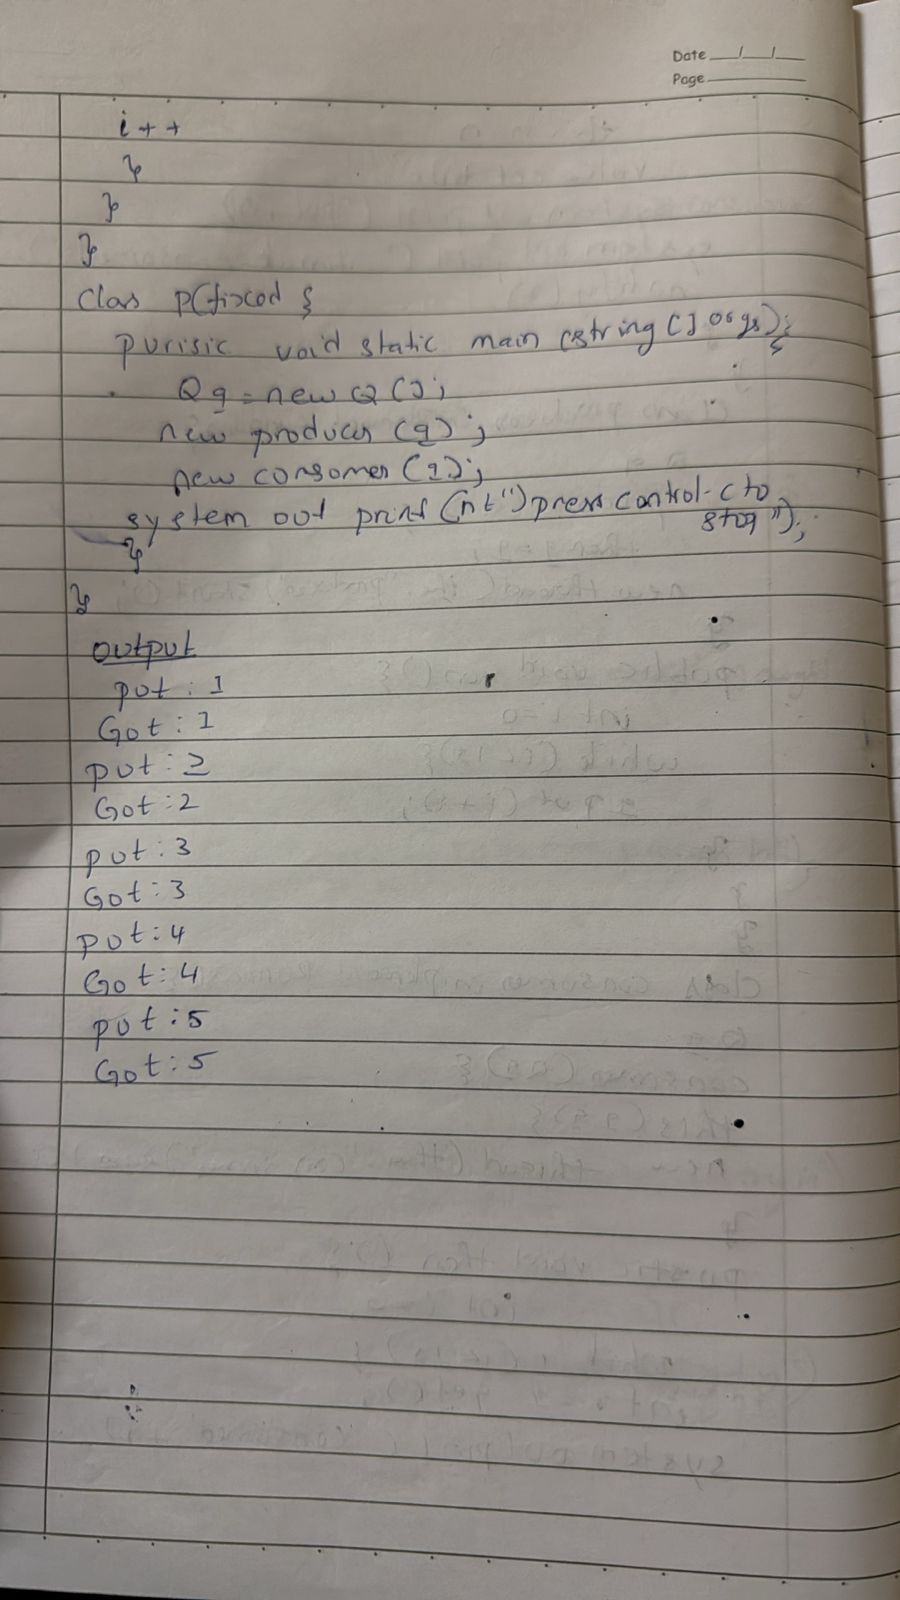 Date __/__/__
Page
i++
}
}
}
Class P(fixcod {
purisic void static main (string ( ] args) {
Q q = new Q ( ) ;
new producer (q) ;
new consomer (q) ;
system out print (nt") press control-c to
stop");
}
}
output
put : 1
Got : 1
put : 2
Got : 2
put : 3
Got : 3
put : 4
Got : 4
put : 5
Got : 5